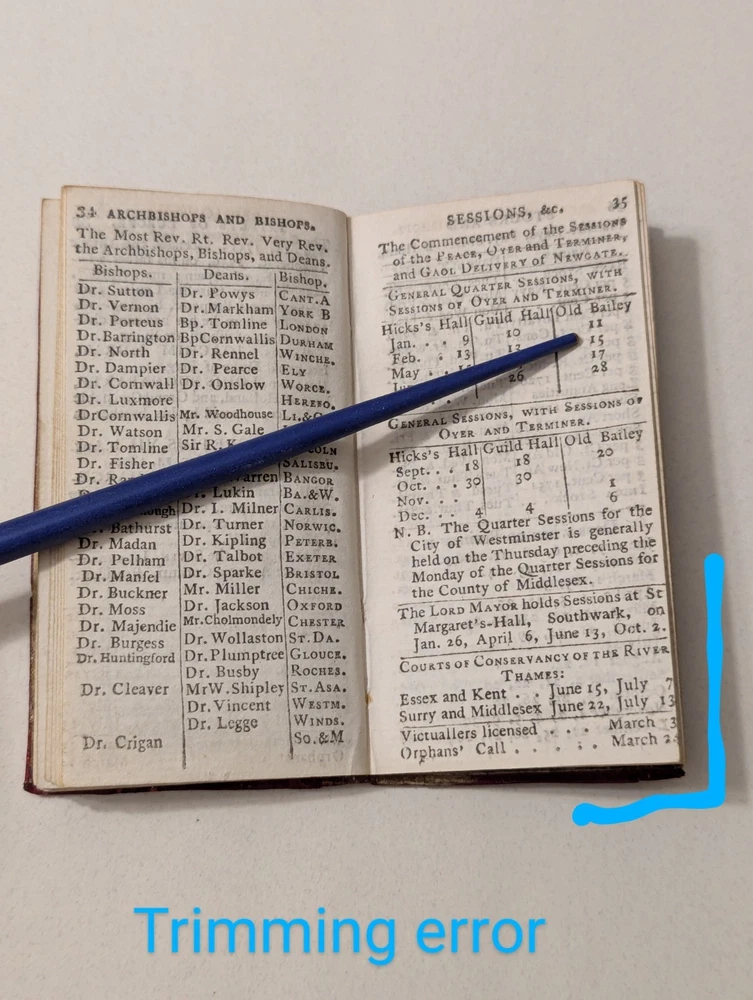 34 ARCHBISHOPS AND BISHOPS.
The Most Rev. Rt. Rev. Very Rev.
the Archbishops, Bishops, and Deans.
Bishops. Deans. Bishop.
Dr. Sutton Dr. Powys CANT.A
Dr. Vernon Dr. Markham YORK B
Dr. Porteus Bp. Tomline LONDON
Dr. Barrington BpCornwallis DURHAM
Dr. North Dr. Rennel WINCHE.
Dr. Dampier Dr. Pearce ELY
Dr. Cornwall Dr. Onslow WORCE.
Dr. Luxmore HEREFO.
DrCornwallis Mr. Woodhouse
Dr. Watson Mr. S. Gale
Dr. Tomline Sir R.
Dr. Fisher SALISBU.
BANGOR
Lukin BA.&W.
Dr. I. Milner CARLIS.
Bathurst Dr. Turner NORWIC.
Dr. Madan Dr. Kipling PETERB.
Dr. Pelham Dr. Talbot EXETER
Dr. Mansel Dr. Sparke BRISTOL
Dr. Buckner Mr. Miller CHICHE.
Dr. Moss Dr. Jackson OXFORD
Dr. Majendie Mr. Cholmondely CHESTER
Dr. Burgess Dr. Wollaston ST.DA.
Dr. Huntingford Dr. Plumptree GLOUCE.
Dr. Busby ROCHES.
Dr. Cleaver MrW.Shipley ST.ASA.
Dr. Vincent WESTM.
Dr. Legge WINDS.
Dr. Crigan SO.&M
SESSIONS, &c. 35
The Commencement of the SESSIONS
of the PEACE, OYER and TERMINER,
and GAOL DELIVERY of NEWGATE.
GENERAL QUARTER SESSIONS, WITH
SESSIONS OF OYER AND TERMINER.
Hicks's Hall Guild Hall Old Bailey
Jan. . . 9 10 11
Feb. . 13 13 15
May . . 17
26 28
GENERAL SESSIONS, WITH SESSIONS OF
OYER AND TERMINER.
Hicks's Hall Guild Hall Old Bailey
Sept. . . 18 18 20
Oct. . . 30 30
Nov. . . . 1
Dec. . . 4 4 6
N. B. The Quarter Sessions for the
City of Westminster is generally
held on the Thursday preceding the
Monday of the Quarter Sessions for
the County of Middlesex.
The LORD MAYOR holds Sessions at St
Margaret's-Hall, Southwark, on
Jan. 26, April 6, June 13, Oct. 2.
COURTS OF CONSERVANCY OF THE RIVER
THAMES:
Essex and Kent . . June 15, July 7
Surry and Middlesex June 22, July 13
Victuallers licensed . . . March 3
Orphans' Call . . . . . March
Trimming error